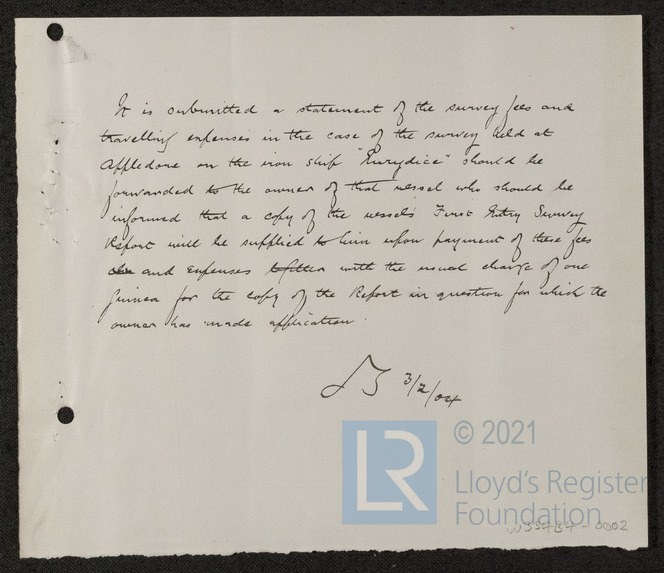 It is submitted a statement of the survey fees and
travelling expenses in the case of the survey held at
Appledore on the iron ship "Eurydice" should be
forwarded to the owner of that vessel who should be
informed that a copy of the vessel's First Entry Survey
Report will be supplied to him upon payment of these fees
and expenses together with the usual charge of one
guinea for the copy of the Report in question for which the
owner has made application.
3/2/04
LR
© 2021
Lloyd's Register
Foundation